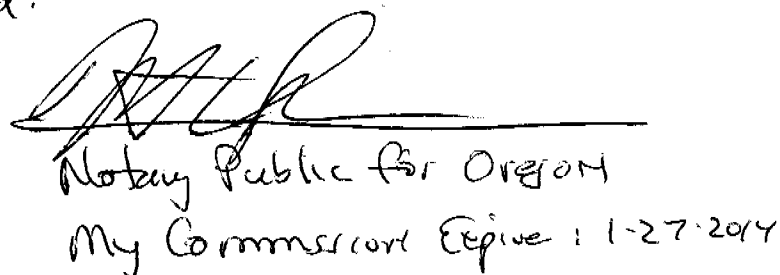 Notary Public for Oregon
My Commission Expire : 1-27-2014